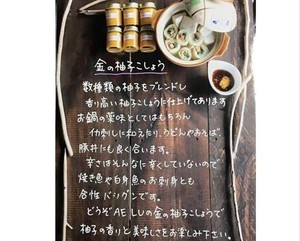 金の柚子こしょう
数種類の柚子をブレンドし
香り高い柚子こしょうに仕上げております
お鍋の薬味としてはもちろん
イカ刺しに和えたり、うどんやおそば、
豚丼にも良く合います。
辛さはそんなに辛くしていないので
焼き魚や白身魚のお刺身とも
合性バツグンです。
どうぞAELUの金の柚子こしょうで
柚子の香りと美味しさをお楽しみ下さい。